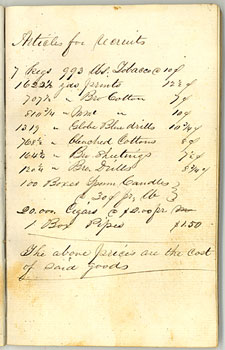 Articles for recruits
7 Kegs 993 lbs. Tobacco @ 10¢
1622½ yds prints 12½¢
707½ " Bro Cotton 7¢
810¾ " " 10¢
1319 " Globe Blue drills 10¾¢
768½ " bleached Cottons 8¢
164½ " Bro Sheetings 7½¢
120¼ " Bro. Drills 8¾¢
100 Boxes Sperm Candles
@ 20¢ pr, lb
20.000 Cigars @ $2.00 pr
1 Box Pipes $1.50
The above prices are the cost
of said goods